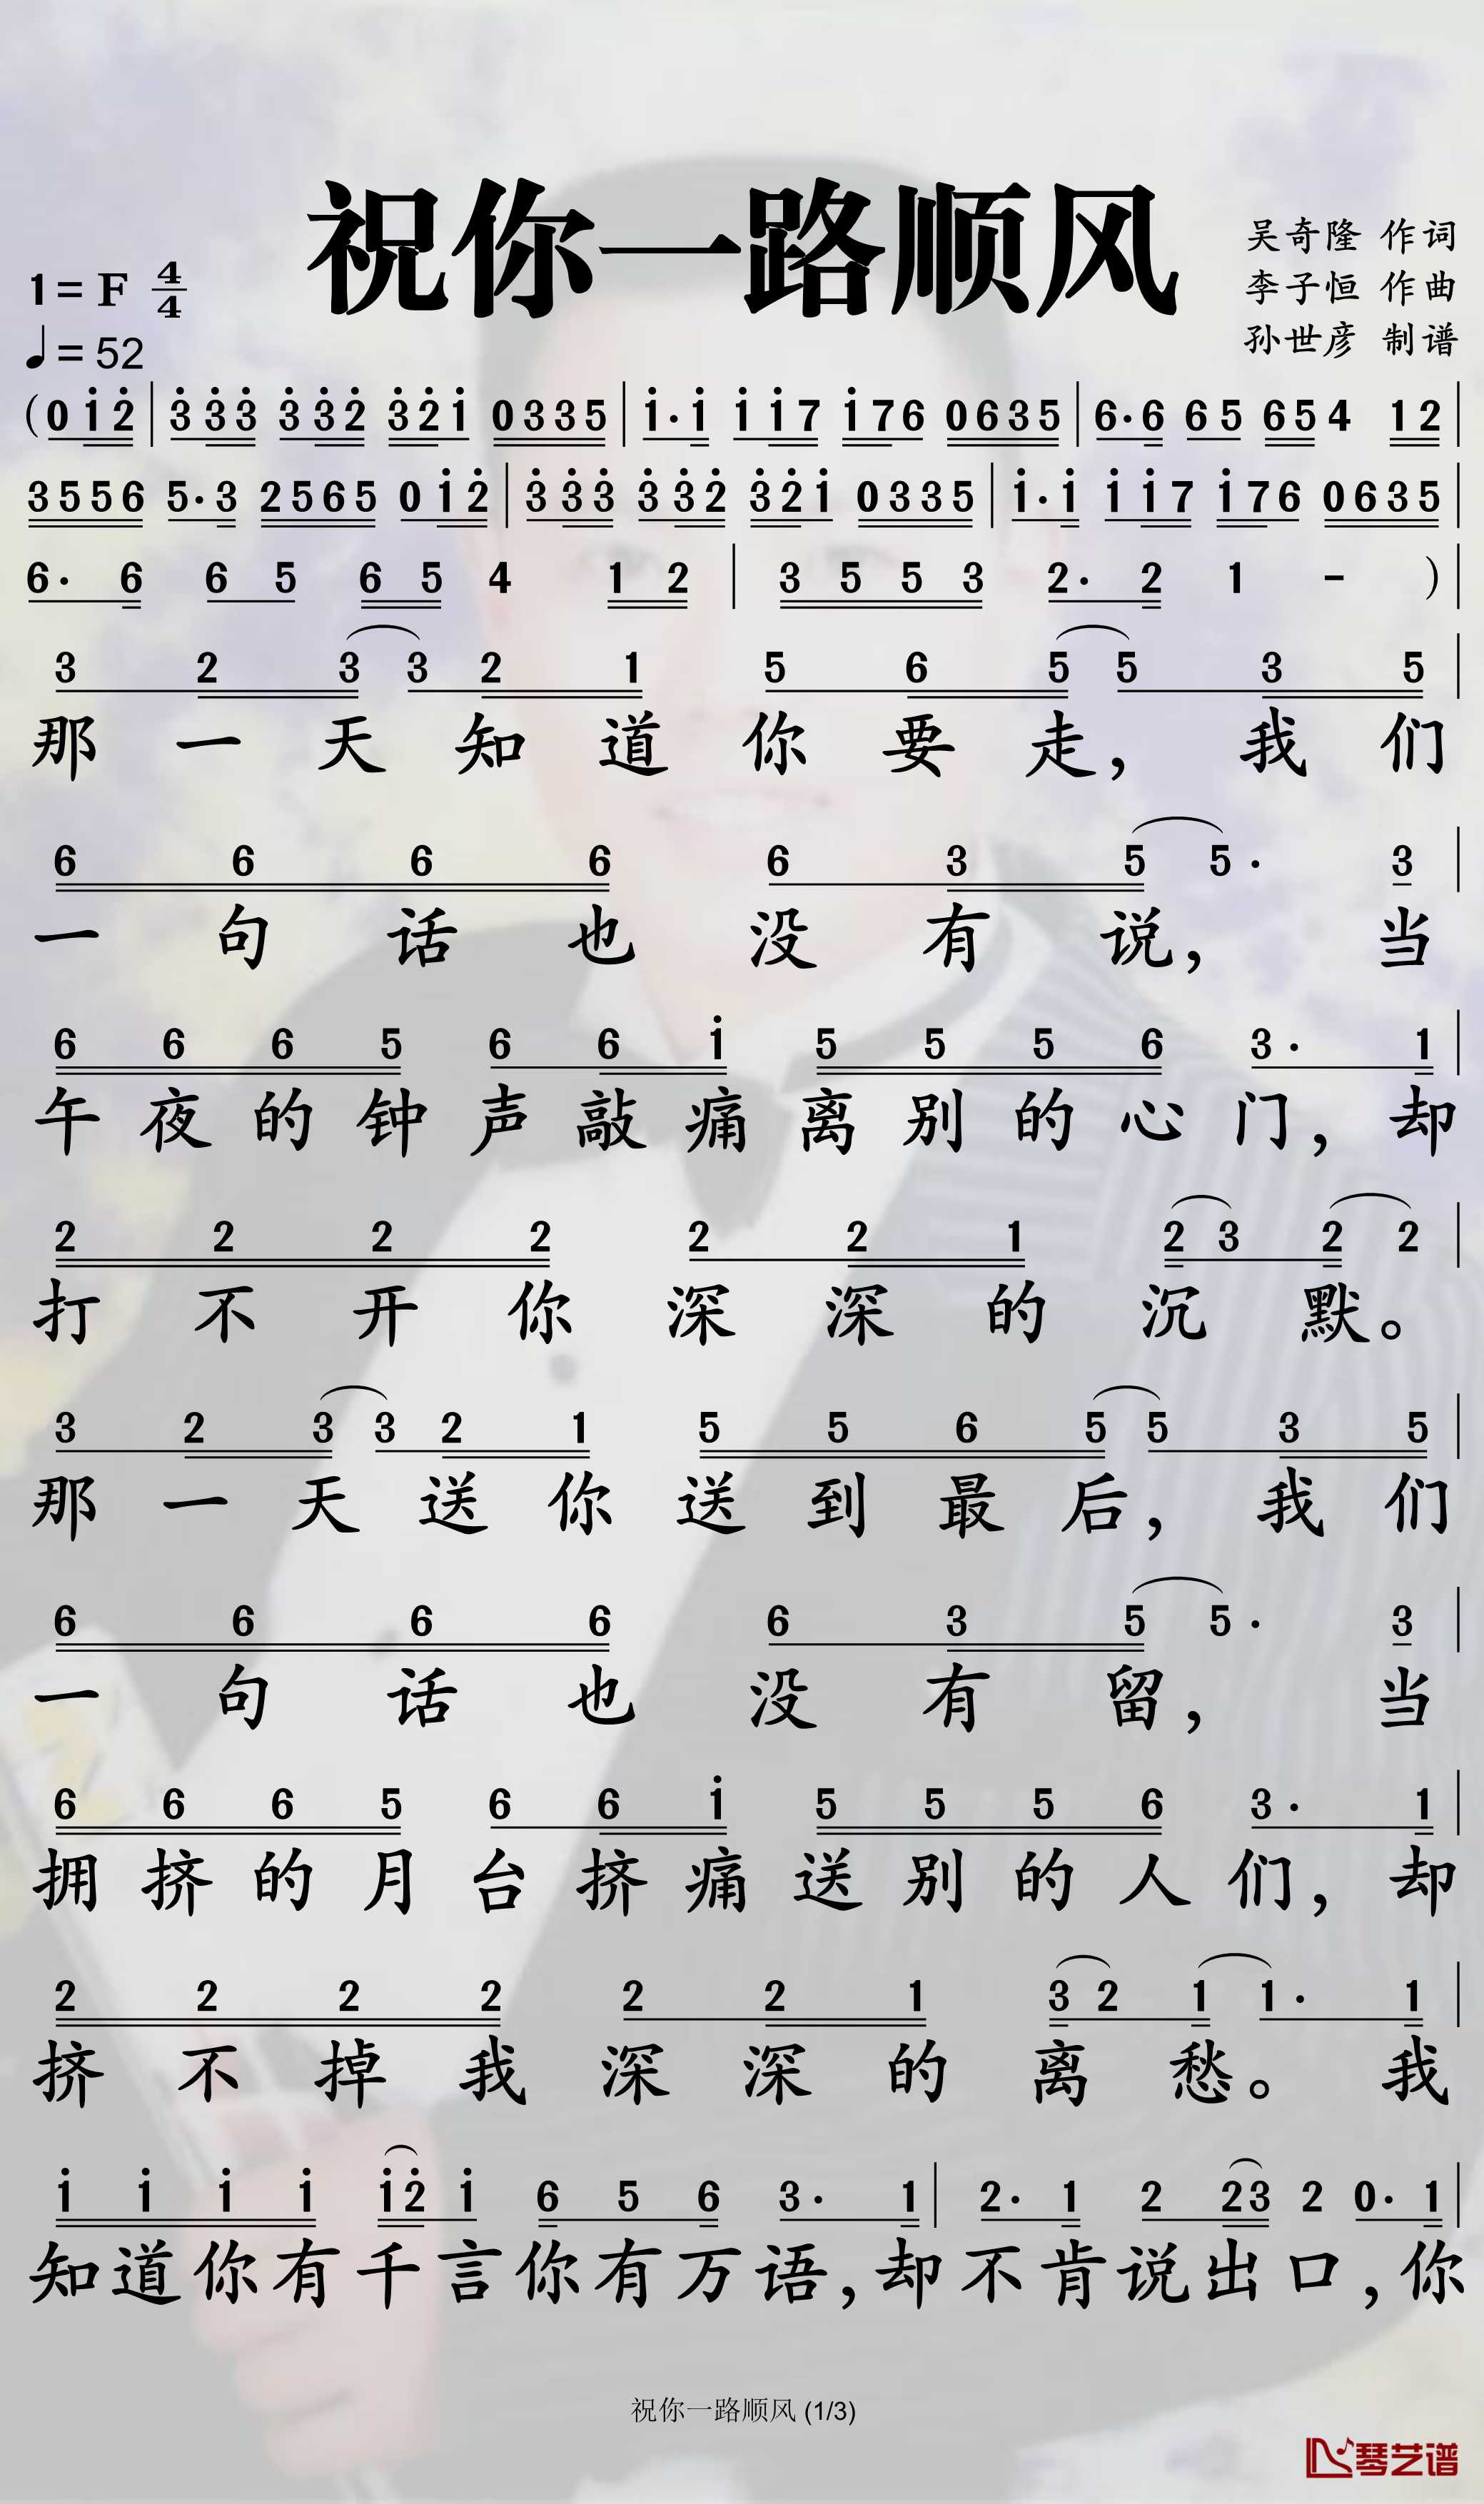 祝你一路顺风
吴奇隆 作词
李子恒 作曲
孙世彦 制谱
1= F 4/4
♩= 52
(0 1̇ 2̇ | 3̇ 3̇ 3̇ 3̇ 3̇ 2̇ 3̇ 2̇ 1̇ 0 3 3 5 | 1̇· 1̇ 1̇ 1̇ 7 1̇ 7 6 0 6 3 5 | 6· 6 6 5 6 5 4 1 2 |
3 5 5 6 5· 3 2 5 6 5 0 1̇ 2̇ | 3̇ 3̇ 3̇ 3̇ 3̇ 2̇ 3̇ 2̇ 1̇ 0 3 3 5 | 1̇· 1̇ 1̇ 1̇ 7 1̇ 7 6 0 6 3 5 |
6· 6 6 5 6 5 4 1 2 | 3 5 5 3 2· 2 1 - ) |
3 2 3 3 2 1 5 6 5 5 3 5 |
那一天知道你要走，我们
6 6 6 6 6 3 5 5· 3 |
一句话也没有说，当
6 6 6 5 6 6 1̇ 5 5 5 6 3· 1 |
午夜的钟声敲痛离别的心门，却
2 2 2 2 2 2 1 2 3 2 2 |
打不开你深深的沉默。
3 2 3 3 2 1 5 5 6 5 5 3 5 |
那一天送你送到最后，我们
6 6 6 6 6 3 5 5· 3 |
一句话也没有留，当
6 6 6 5 6 6 1̇ 5 5 5 6 3· 1 |
拥挤的月台挤痛送别的人们，却
2 2 2 2 2 2 1 3 2 1 1· 1 |
挤不掉我深深的离愁。我
1̇ 1̇ 1̇ 1̇ 1̇ 2̇ 1̇ 6 5 6 3· 1 | 2· 1 2 2 3 2 0· 1 |
知道你有千言你有万语，却不肯说出口，你
祝你一路顺风 (1/3)
琴艺谱